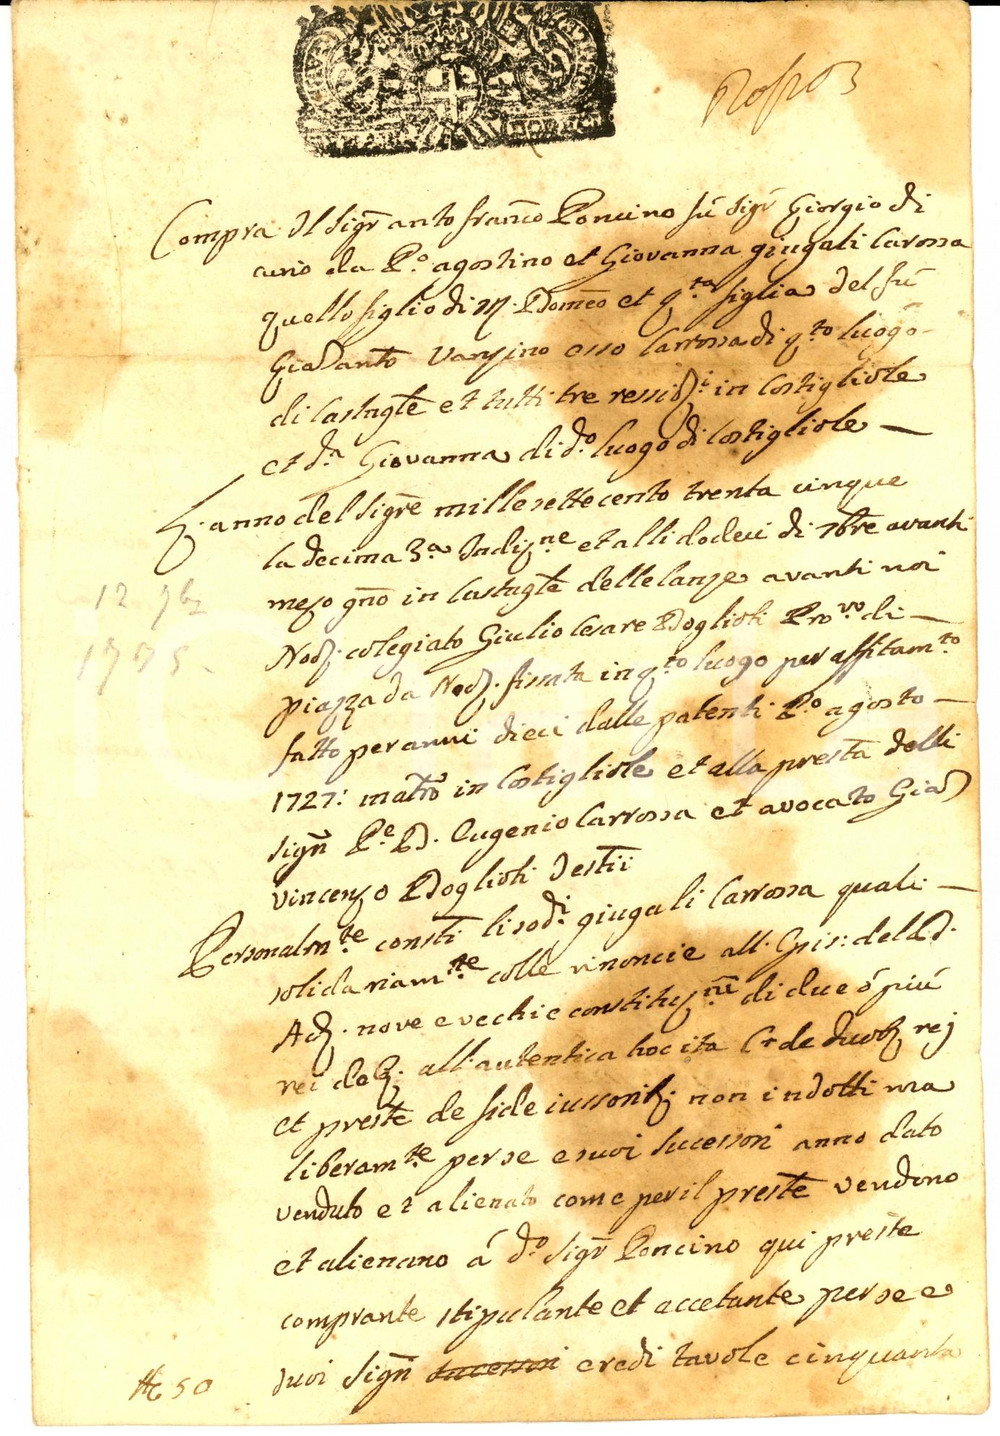 Compra Il Sigr anto franco Poncino fu Sigr Giorgio di
da Po agostino et Giovanna giugali Carossa
quello figlio di M. Domco et qta figlia del fu
Gio anto esso Carrossa di qto luogo
di Castagle et tutti tre ressidi in Costigliole
et da Giovanna di do luogo di Costigliole
anno del Sigre millesettecento trenta cinque
la decima 3a Indizne et alli dodeci di 7bre avanti
mezo gno in Castagle delle lanze avanti noi
Nod. colegiato Giulio Cesare Doglioti Provo di
piazza da Nod. fissata in qto luogo per affitamto
fatto per anni dieci dalle patenti Po agosto
1727: in Costigliole et alla presta delli
sign Pe D. Eugenio Carrossa et avocato Gio
Vincenzo Doglioti Testii
Personalmte consti li sodi giugali Carrossa quali
solidariamte colle rinoncie all. del D.
Ad. nove e vechie constituzni di due ó piú
rei all'autentica hoc ita Cr de duob rej
et preste de fide iussorib. non indotti ma
liberamte per se e suoi sucessori anno dato
venduto et alienato come per il preste vendono
et alienano á do Sigr Poncino qui preste
comprante stipulante et accetante per se e
suoi Sign sucessori eredi tavole cinquanta
12 7b
1735
50